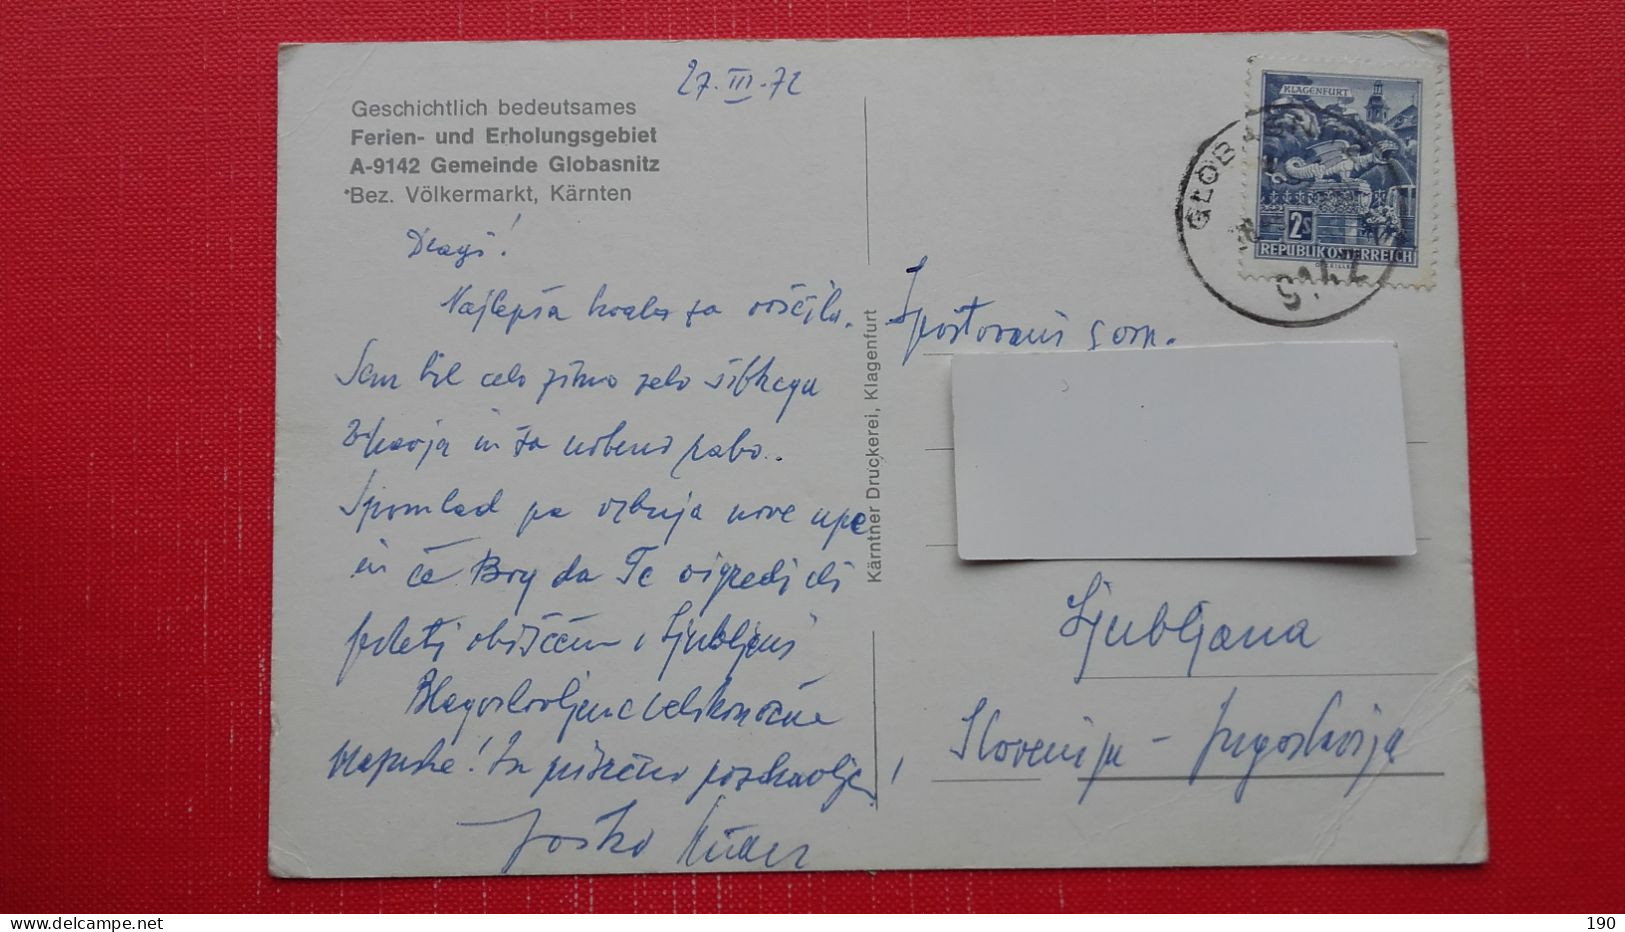 27.III.72
Geschichtlich bedeutsames
Ferien- und Erholungsgebiet
A-9142 Gemeinde Globasnitz
Bez. Völkermarkt, Kärnten
Dragi!
Najlepša hvala za voščila.
Sem bil celo zimo zelo šibkega
zdravja in za nobeno rabo.
Spomlad pa vzbuja nove upe
in če Bog da Te vigredi ali
poleti obiščem v Ljubljani
Blagoslovljene velikonočne
praznike! In prisrčno pozdravljen!
Joško
Kärntner Druckerei, Klagenfurt
KLAGENFURT
2s
REPUBLIK ÖSTERREICH
9142
Spoštovani gosp.
Ljubljana
Slovenija - Jugoslavija
delcampe.net
the_wizard_of_oz
190